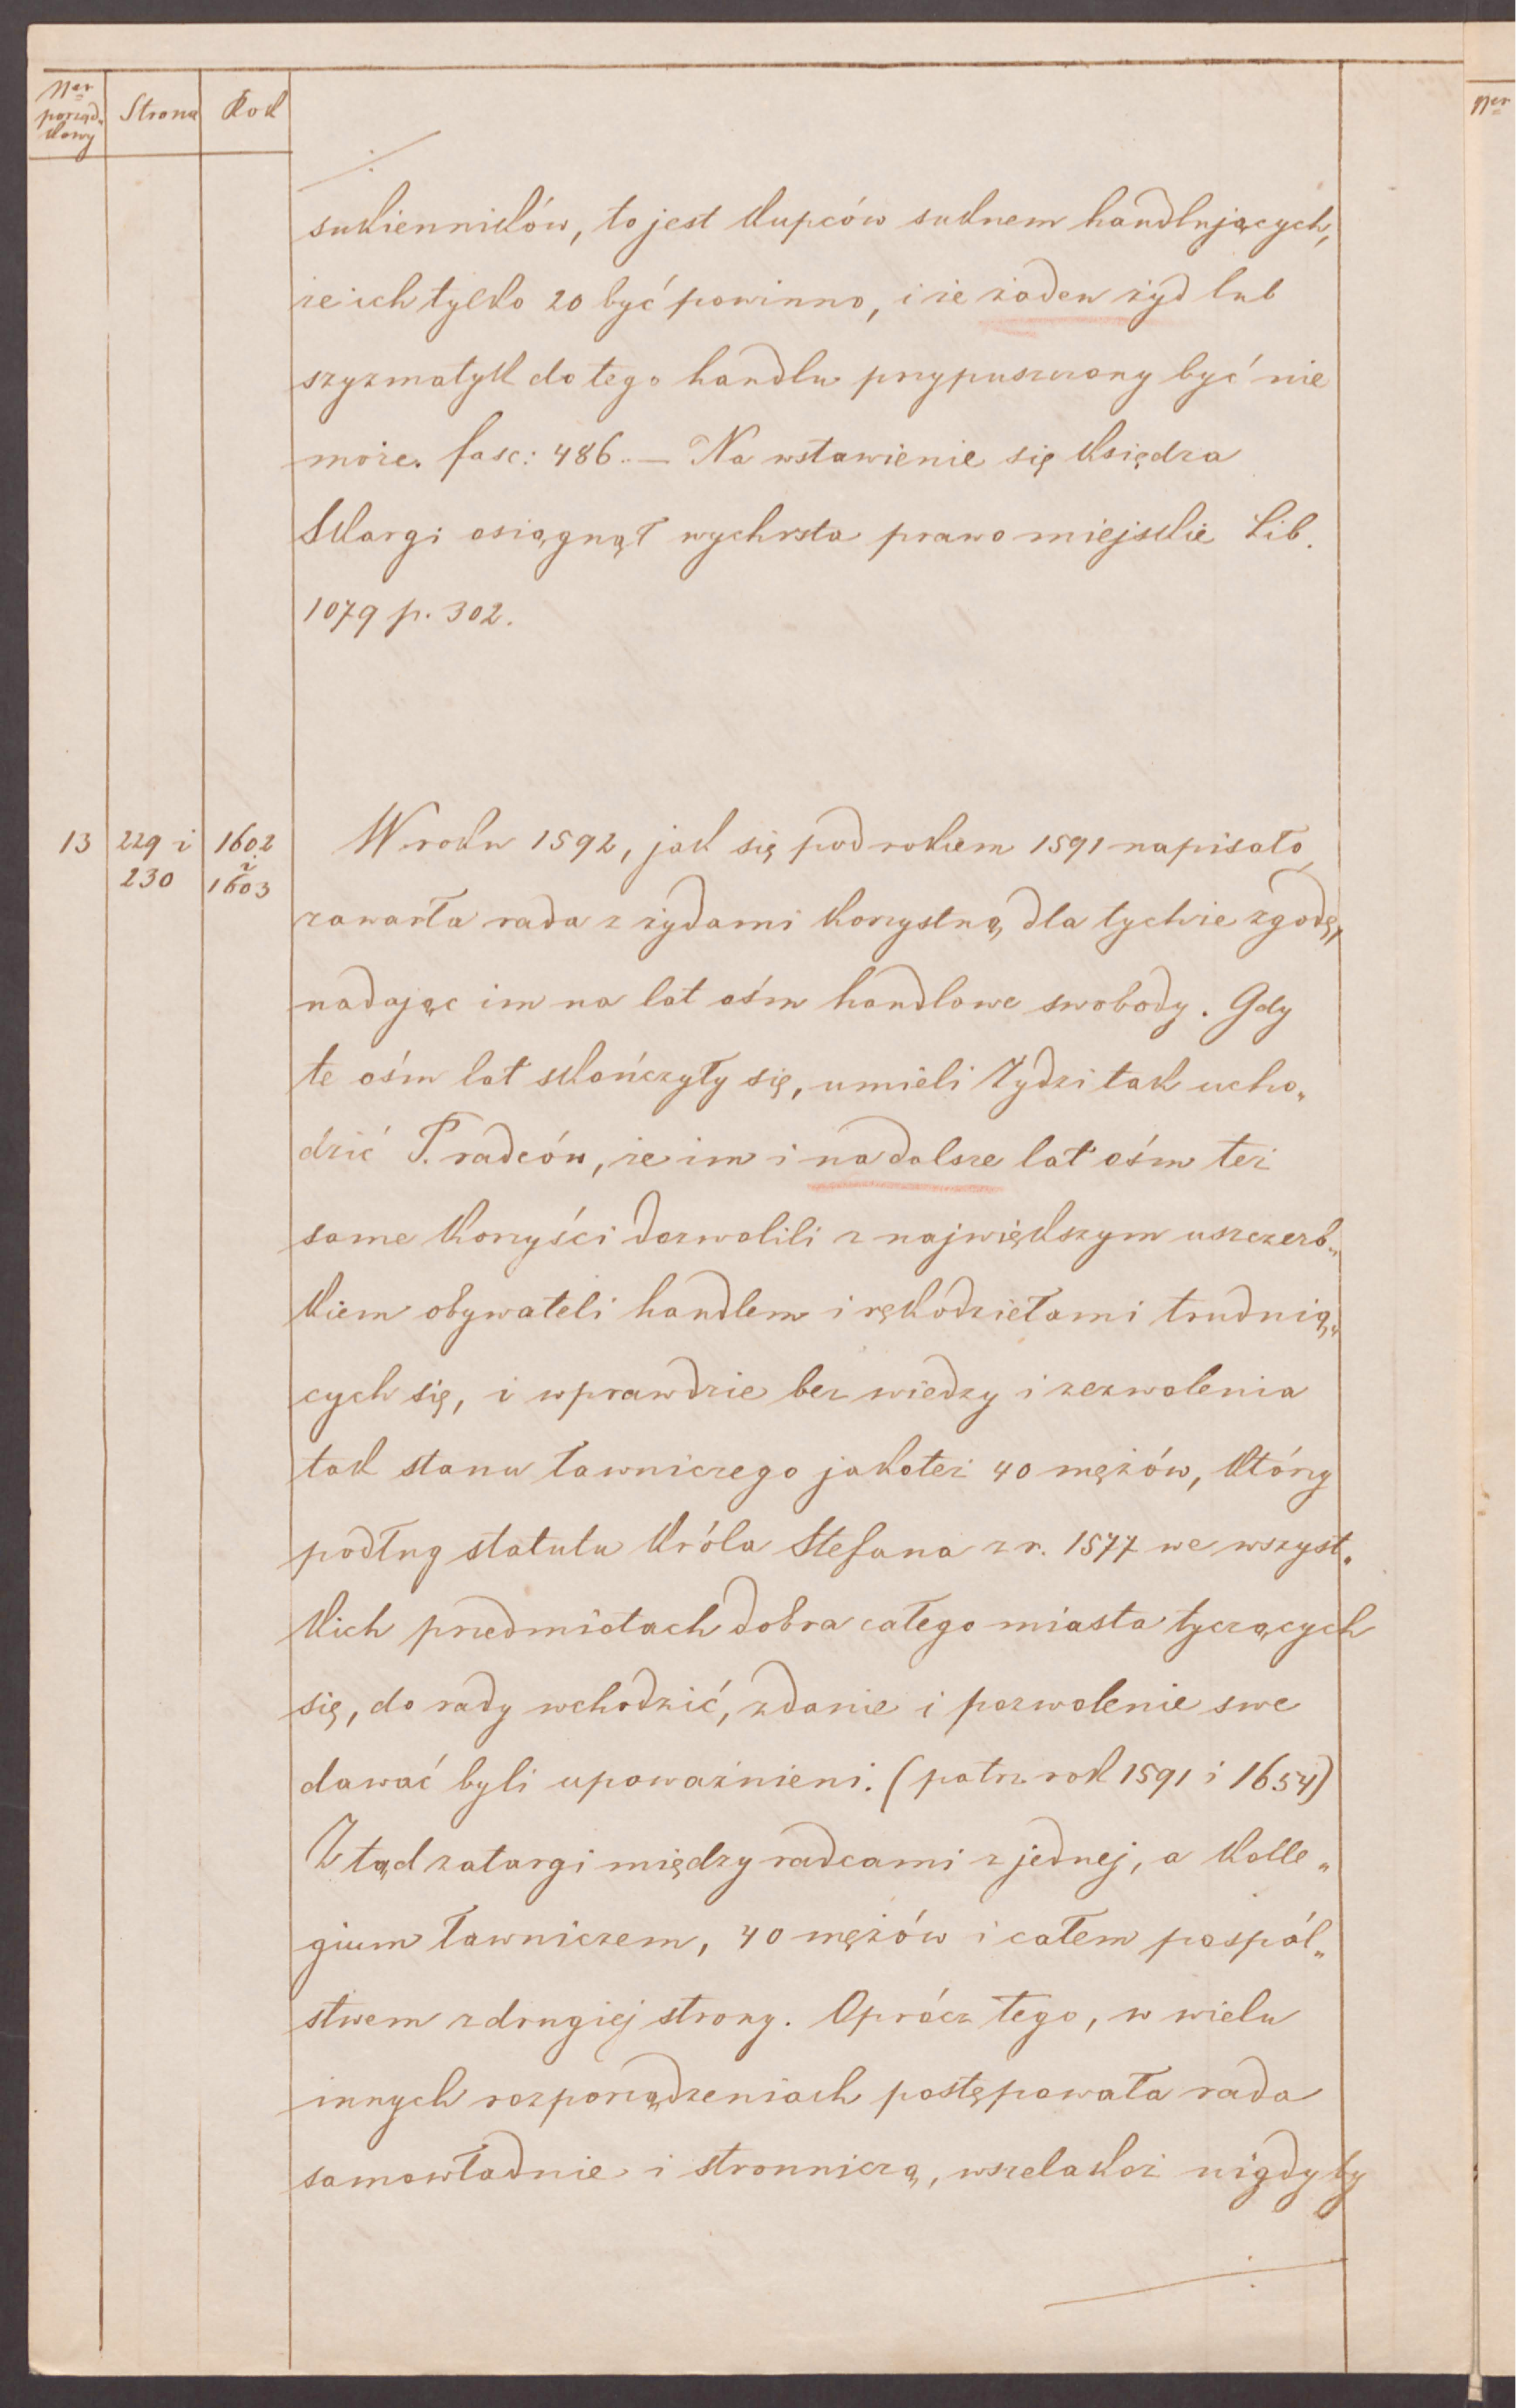 Ner porząd„ Strona Rok
kowy
sukienników, to jest kupców suknem handlujących,
że ich tylko 20 być powinno, i że żaden żyd lub
szyzmatyk do tego handlu przypuszczony być nie
może. fasc: 486. — Na wstawienie się księdza
Skargi osiągnął wychrsta prawo miejskie Lib.
1079 p. 302.
13 229 i 1602 W roku 1592, jak się pod rokiem 1591 napisało,
230 i 1603
zawarła rada z żydami korzystną dla tychże zgodę,
nadając im na lat ośm handlowe swobody. Gdy
te ośm lat skończyły się, umieli Żydzi tak ucho„
dzić P. radców, że im i na dalsze lat ośm też
same korzyści dozwolili z największym uszczerb„
kiem obywateli handlem i rękodziełami trudnią„
cych się, i wprawdzie bez wiedzy i zezwolenia
tak stanu ławniczego jakoteż 40 mężów, którzy
podług statutu Króla Stefana z r. 1577 we wszyst„
kich przedmiotach dobra całego miasta tyczących
się, do rady wchodzić, zdanie i pozwolenie swe
dawać byli upoważnieni. (patrz rok 1591 i 1654)
Ztąd zatargi między radcami z jednej, a kolle„
gium ławniczem, 40 mężów i całem pospól„
stwem z drugiej strony. Oprócz tego, w wielu
innych rozporządzeniach postępowała rada
samowładnie i stronniczą, wszelakoż nigdyby
Ner